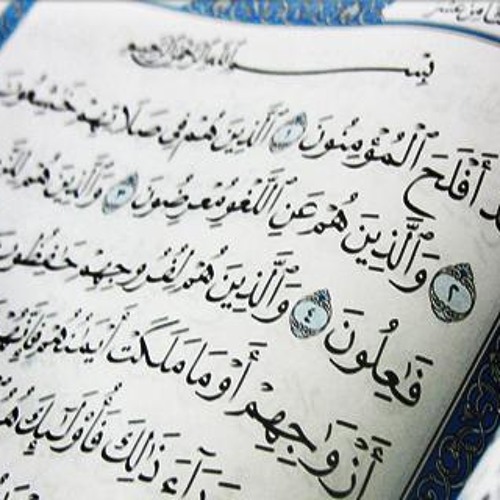 بِسْمِ ٱللَّهِ ٱلرَّحْمَٰنِ ٱلرَّحِيمِ
أَفْلَحَ ٱلْمُؤْمِنُونَ ١ ٱلَّذِينَ هُمْ فِى صَلَاتِهِمْ خَٰشِعُونَ
٢ وَٱلَّذِينَ هُمْ عَنِ ٱللَّغْوِ مُعْرِضُونَ ٣ وَٱلَّذِينَ هُمْ
فَٰعِلُونَ ٤ وَٱلَّذِينَ هُمْ لِفُرُوجِهِمْ حَٰفِظُونَ
أَزْوَٰجِهِمْ أَوْ مَا مَلَكَتْ أَيْمَٰنُهُمْ فَإِنَّهُمْ
وَرَآءَ ذَٰلِكَ فَأُو۟لَٰٓئِكَ هُمُ